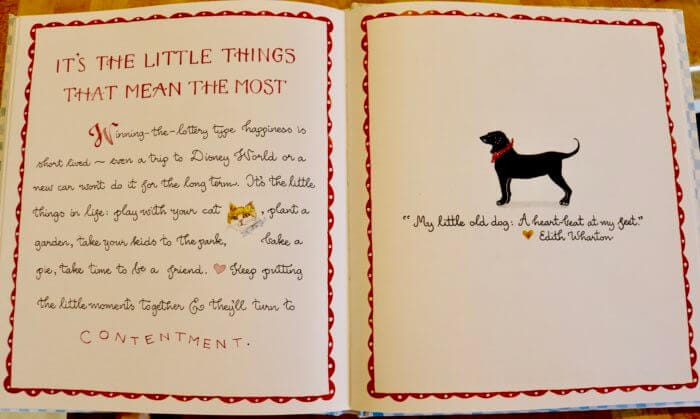 IT'S THE LITTLE THINGS
THAT MEAN THE MOST
Winning-the-lottery type happiness is
short lived ~ even a trip to Disney World or a
new car won't do it for the long term. It's the little
things in life: play with your cat , plant a
garden, take your kids to the park, bake a
pie, take time to be a friend. ♥ Keep putting
the little moments together & they'll turn to
CONTENTMENT.
"My little old dog: A heart-beat at my feet."
♥ Edith Wharton